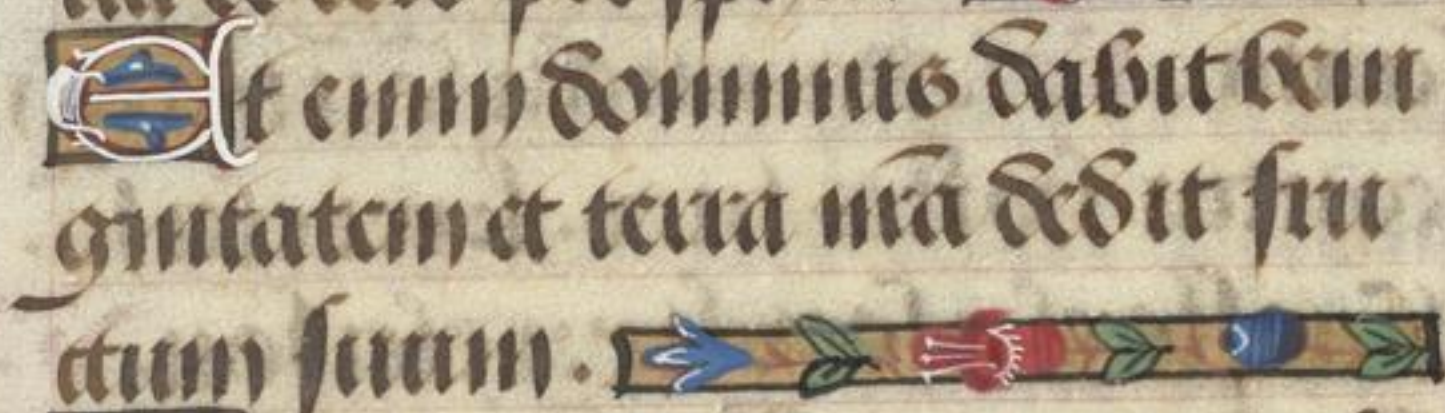 Et enim dominus dabit beni
gnitatem et terra nr̄a dedit fru
ctum suum .